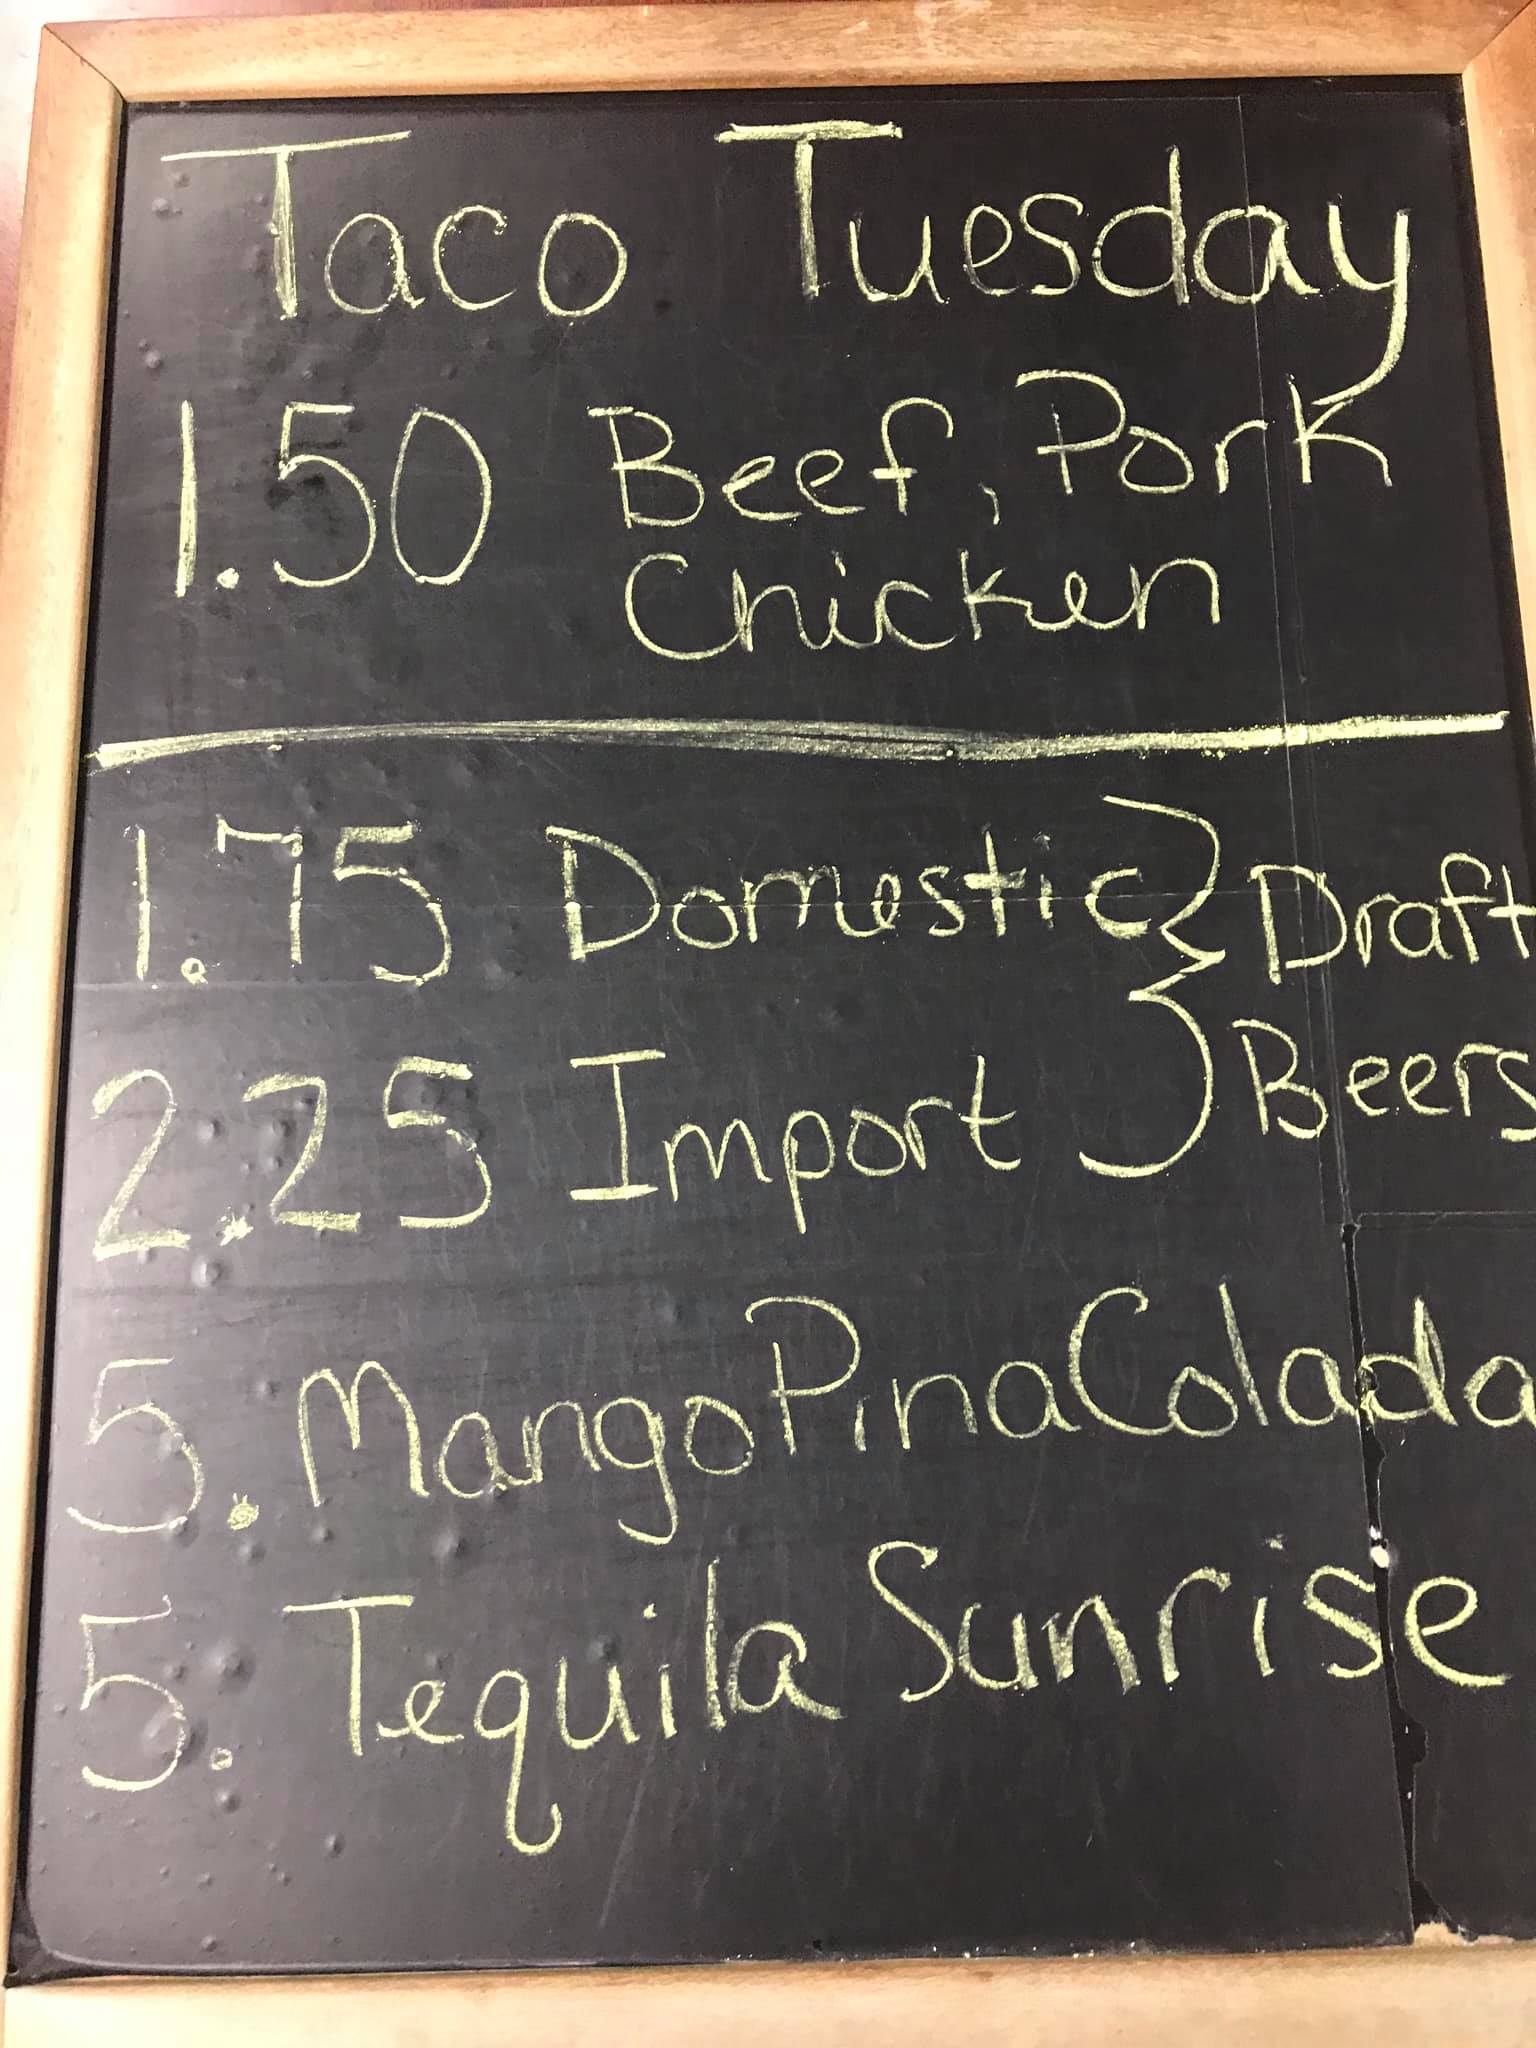 Taco Tuesday
1.50 Beef, Pork
Chicken
1.75 Domestic } Draft
2.25 Import } Beers
5. Mango Pina Colada
5. Tequila Sunrise